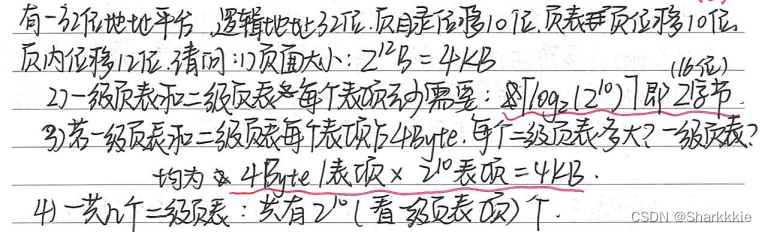 有一32位地址平台,逻辑地址32位.页目录位移10位,页表页位移10位,
页内位移12位.请问:1)页面大小:2^12B=4KB
(16位)
2)一级页表和二级页表每个表项至少需要:⌈log₂(2^10)⌉即2字节.
3)若一级页表和二级页表每个表项占4Byte.每个二级页表多大?一级页表?
均为 4Byte/表项×2^10表项=4KB.
4)一共几个二级页表:共有2^10(看一级页表项)个.
CSDN @Sharkkkie